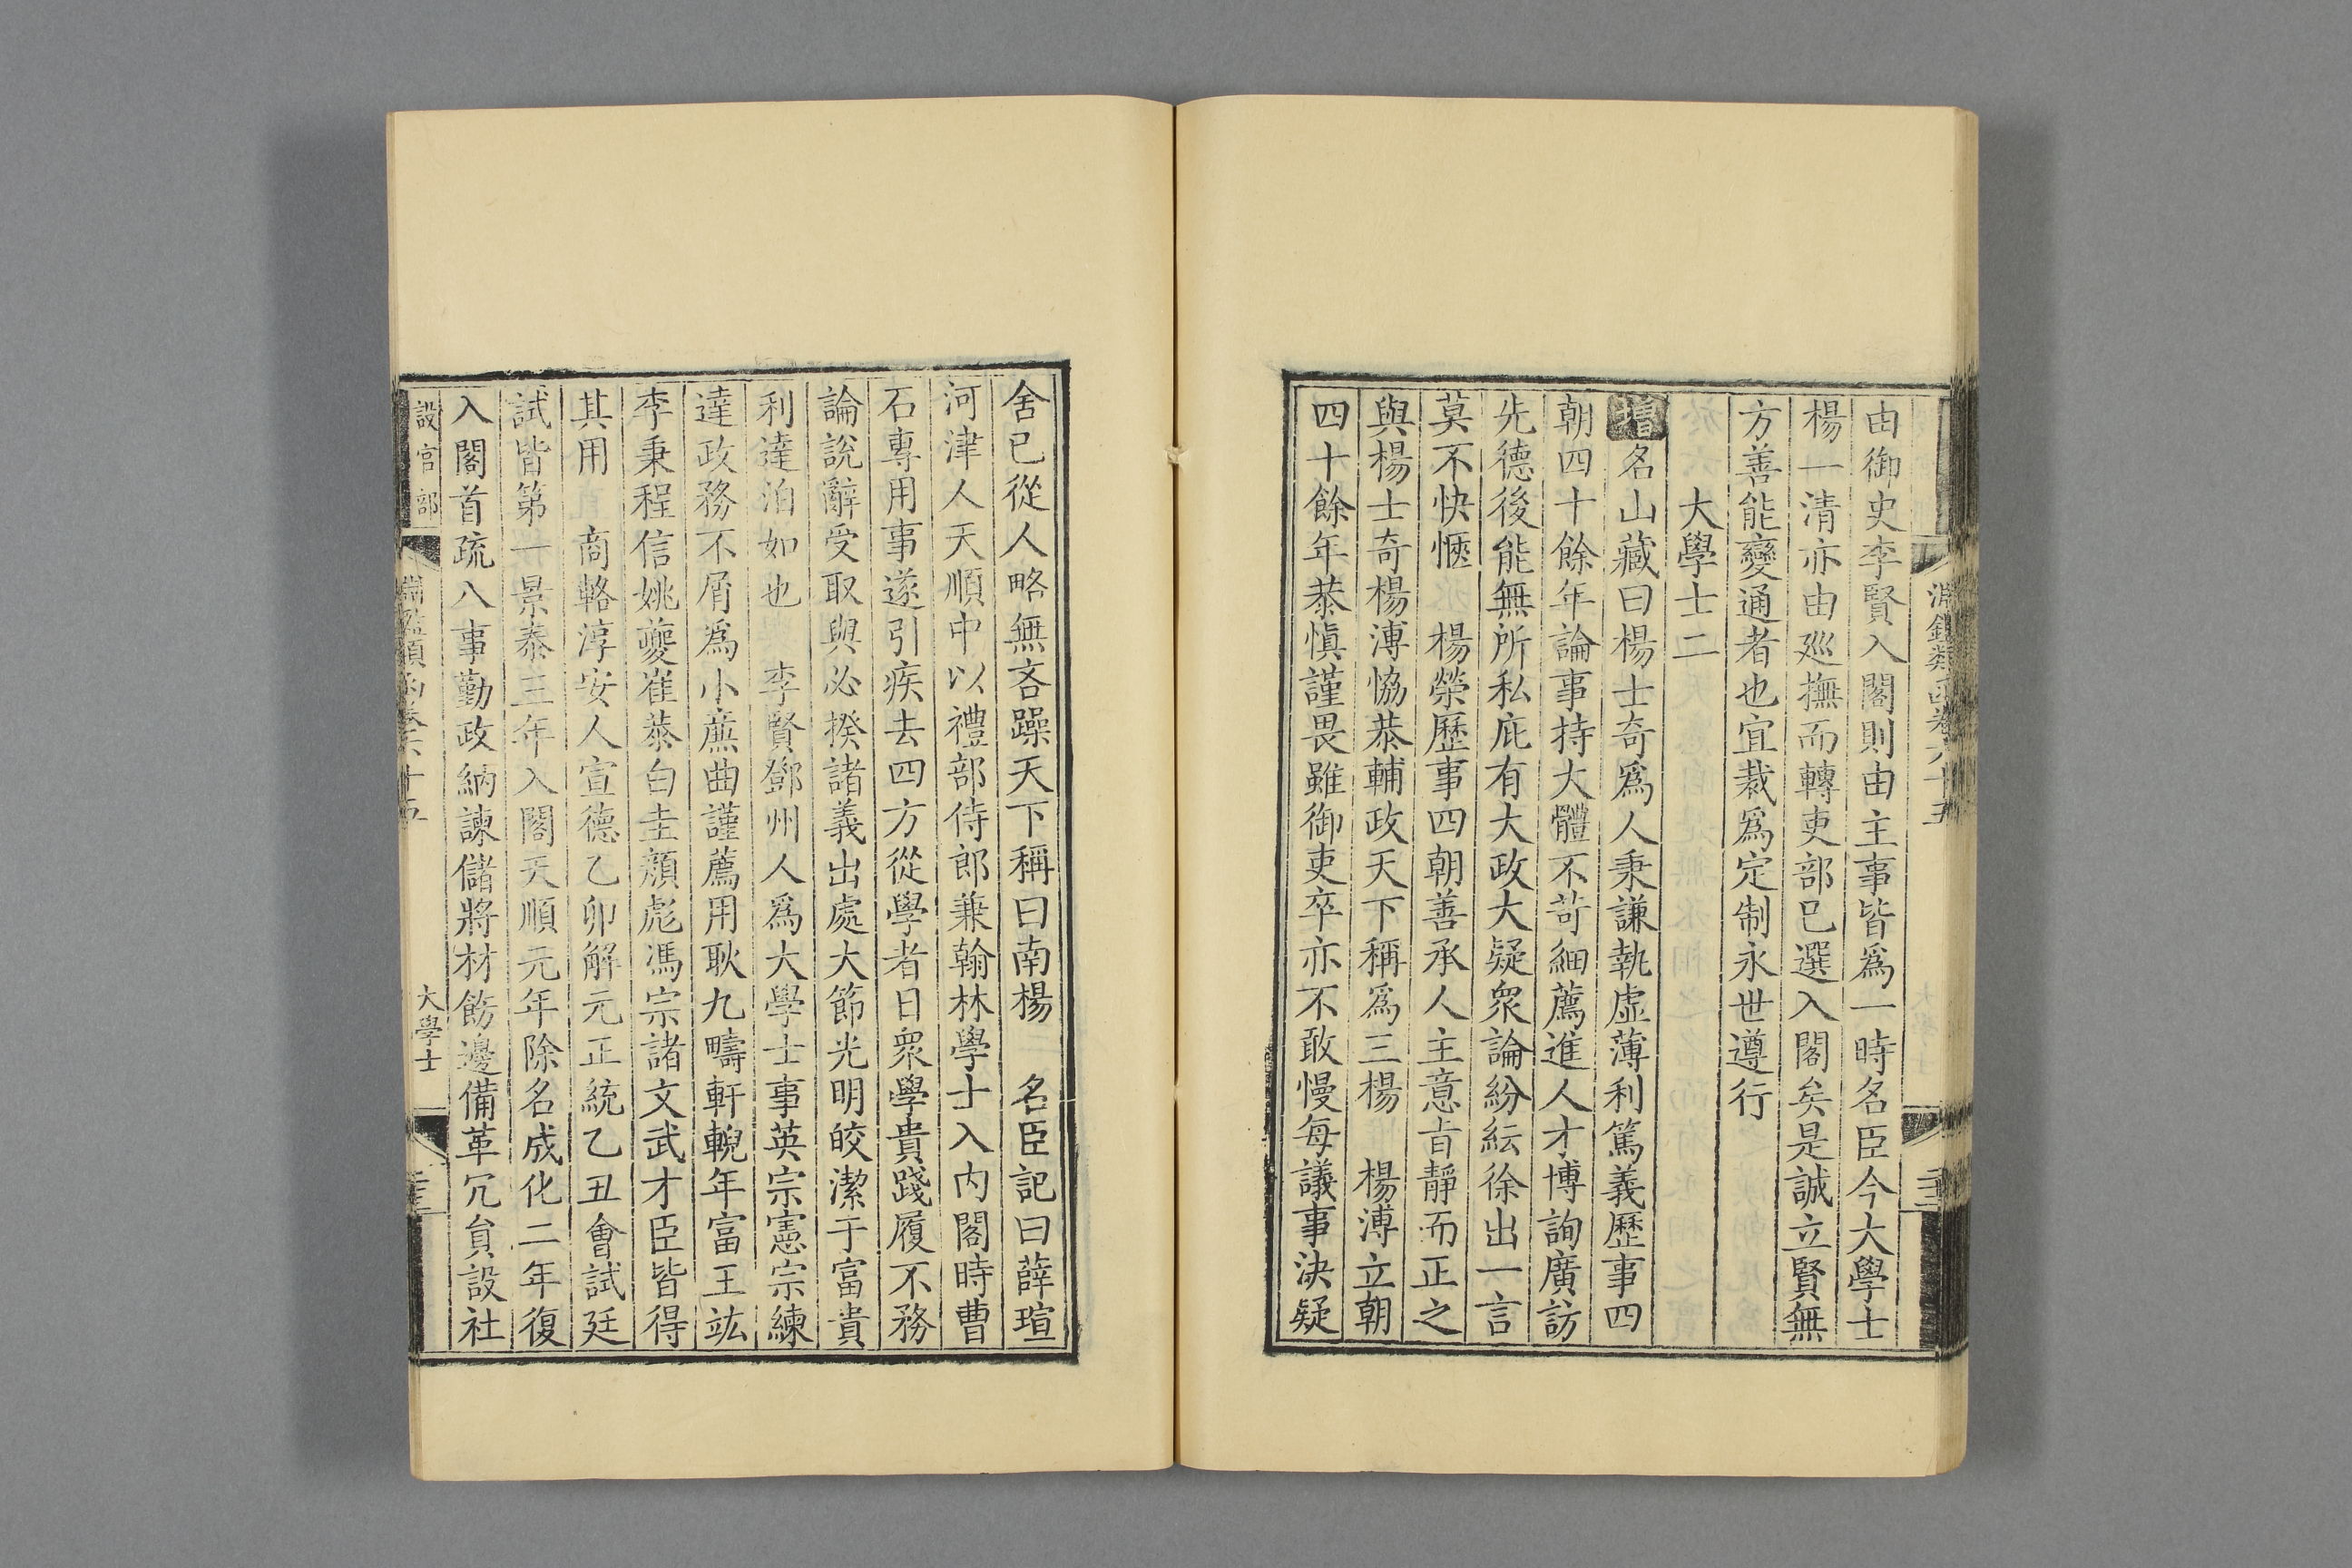 淵鑑類函卷六十五
由御史李賢入閣則由主事皆爲一時名臣今大學士
楊一清亦由廵撫而轉吏部巳選入閣矣是誠立賢無
方善能變通者也宜裁爲定制永世遵行
大學士二
增名山藏曰楊士奇爲人秉謙執虛薄利篤義歷事四
朝四十餘年論事持大體不苛細薦進人才博詢廣訪
先德後能無所私庇有大政大疑衆論紛紜徐出一言
莫不快愜 楊榮歷事四朝善承人主意旨靜而正之
與楊士奇楊溥恊恭輔政天下稱爲三楊 楊溥立朝
四十餘年恭愼謹畏雖御吏卒亦不敢慢每議事決疑
舍已從人略無吝躁天下稱曰南楊 名臣記曰薛瑄
河津人天順中以禮部侍郎兼翰林學士入内閣時曹
石專用事遂引疾去四方從學者日衆學貴踐履不務
論說辭受取與必揆諸義出處大節光明皎潔于富貴
利達泊如也 李賢鄧州人爲大學士事英宗憲宗練
達政務不屑爲小廉曲謹薦用耿九疇軒輗年富王竑
李秉程信姚夔崔恭白圭顏彪馮宗諸文武才臣皆得
其用 商輅淳安人宣德乙卯解元正統乙丑會試廷
試皆第一景泰三年入閣天順元年除名成化二年復
入閣首疏八事勤政納諫儲將材飭邊備革冗員設社
設官部 淵鑑類函卷六十五 大學士